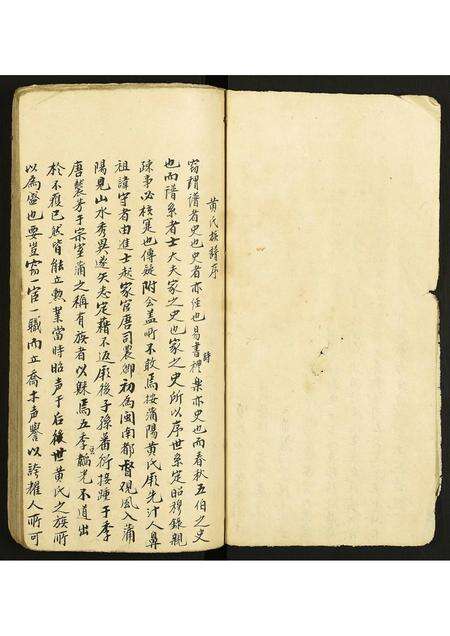 黄氏族譜序
窃謂譜者史也史者亦任也易書詩禮樂亦史也而春秋五伯之史
也而譜系者士大夫家之史也家之史所以序世系定昭穆錄親
疎事必核寔也傳疑附会盖所不敢焉按蒲陽黄氏厥先汁人鼻
祖諱守者由進士起家官唐司農卿初為閩南都督觀風入蒲
陽見山水秀異遂矢志定藉不返厥後子孫蕃衍接踵于季
唐襲芳于宗室蒲之称有族者以縣焉五季韜光不道出
於不獲已然皆能立勲業當時昭声于后後世黄氏之族所
以為盛也要豈窃官一職而立喬木声譽以誇耀人所可